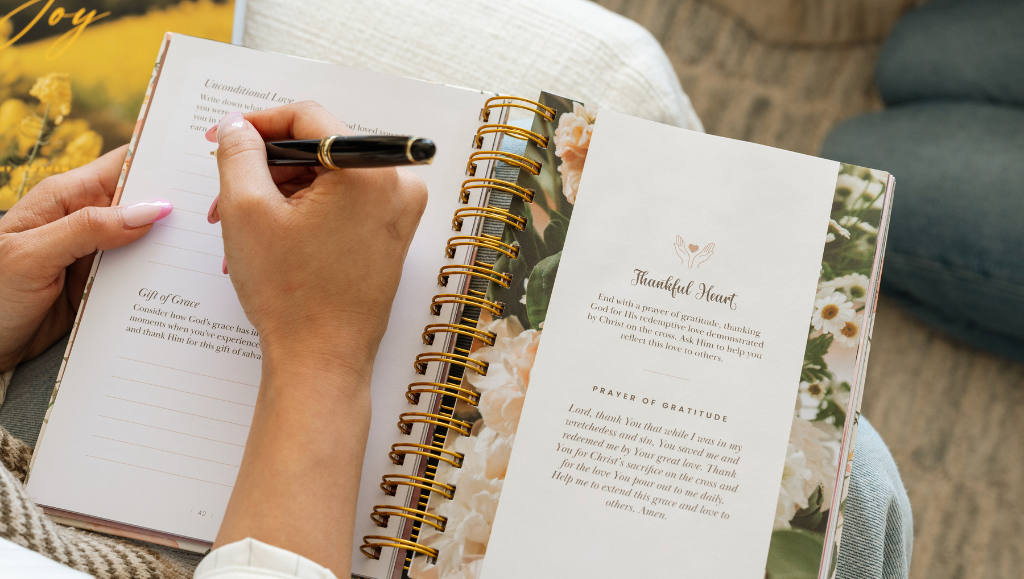 Joy
Unconditional Love
Write down what
you were God loved you
you in
earn
Gift of Grace
Consider how God's grace has
moments when you've experience
and thank Him for this gift of
Thankful Heart
End with a prayer of gratitude, thanking
God for His redemptive love demonstrated
by Christ on the cross. Ask Him to help you
reflect this love to others.
PRAYER OF GRATITUDE
Lord, thank You that while I was in my
wretchedness and sin, You saved me and
redeemed me by Your great love. Thank
You for Christ's sacrifice on the cross and
for the love You pour out to me daily.
Help me to extend this grace and love to
others. Amen.